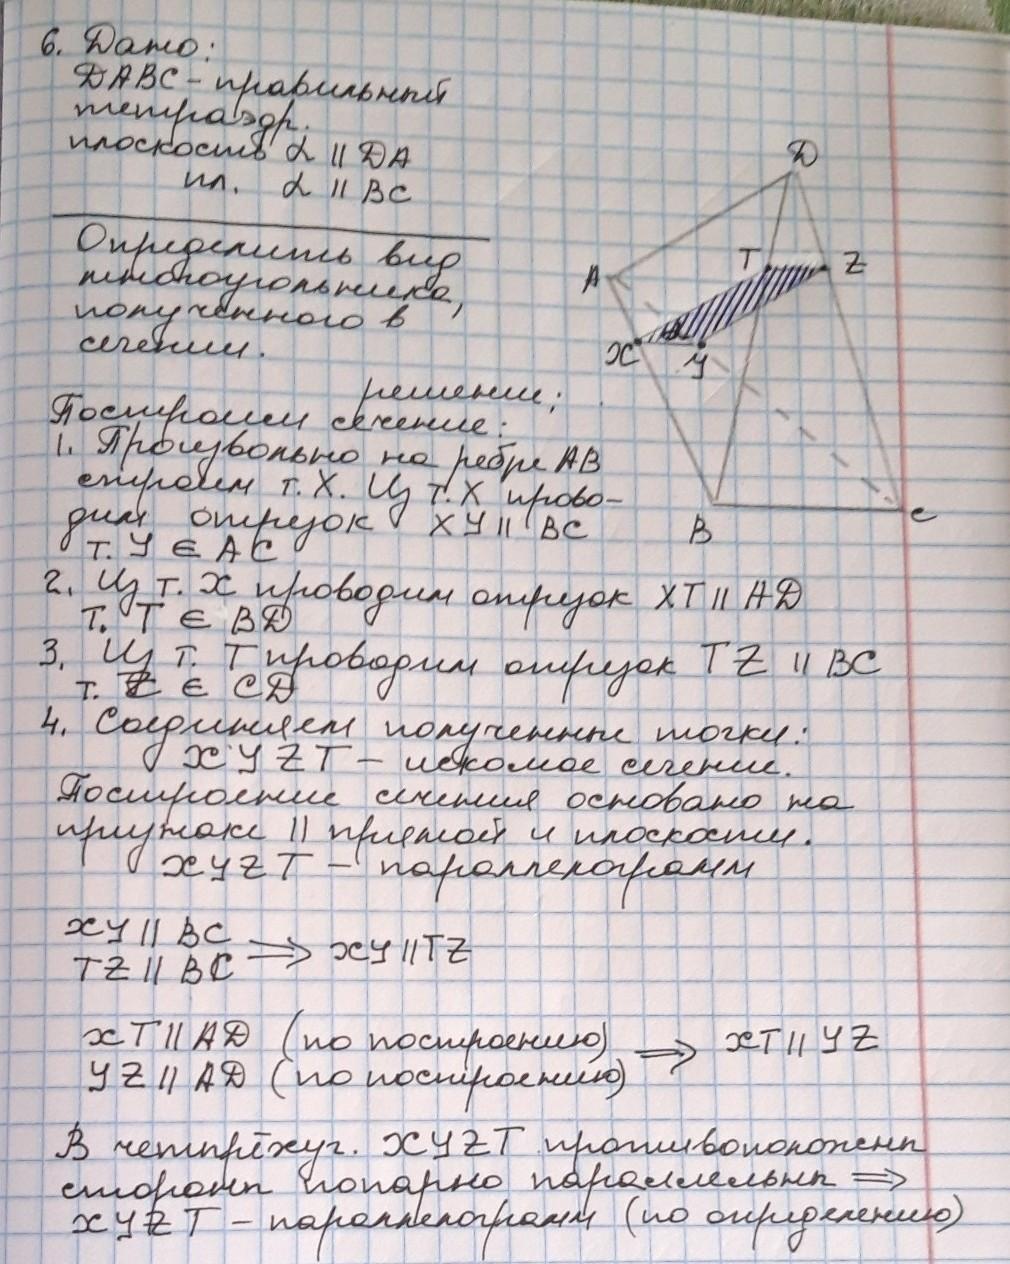 6. Дано:
DABC – правильный
тетраэдр.
плоскость α || DA
пл. α || BC
Определить вид
многоугольника,
полученного в
сечении.
D
A
T
Z
X
α
Y
B
C
решение:
Построим сечение:
1. Произвольно на ребре AB
строим т. X. Из т. X прово-
дим отрезок XY || BC
т. Y ∈ AC
2. Из т. X проводим отрезок XT || AD
т. T ∈ BD
3. Из т. T проводим отрезок TZ || BC
т. Z ∈ CD
4. Соединяем полученные точки:
XYZT – искомое сечение.
Построение сечения основано на
признаке || прямой и плоскости.
XYZT – параллелограмм
XY || BC
TZ || BC ⇒ XY || TZ
XT || AD (по построению)
YZ || AD (по построению) ⇒ XT || YZ
В четырёхуг. XYZT противоположн
стороны попарно параллельны ⇒
XYZT – параллелограмм (по определению)